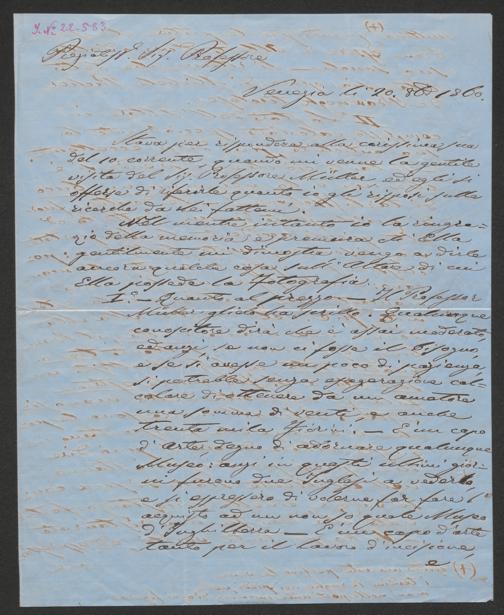 I. N. 22.583
Pregiatis.º Sig. Professore
Venezia li 20. 8bre 1860.
Stava per rispondere alla carissima sua
del 10. corrente, quando mi venne la gentile
visita del Sig. Professore Müller, ed egli si
offerse di riferirle quanto io gli risposi sulla
ricerca da Lei fattami.
Nel mentre intanto io la ringra-
zio della memoria e premura che Ella
gentilmente mi dimostra vengo a dirle
ancora qualche cosa sull'Altare di cui
Ella possede la Fotografia.
I.º – Quanto al prezzo – Il Professor
Müller glielo ha scritto. Qualunque
conoscitore dirà che è assai moderato,
ed anzi se non ci fosse il bisogno,
e se si avesse un poco di pazienza
si potrebbe senza esagerazione cal-
colare di ottenere da un amatore
una somma di venti, o anche
trenta mila Fiorini. – È un capo
d'arte, degno di adornare qualunque
Museo: anzi in questi ultimi gior-
ni furono due Inglesi a vederlo
e si espressero di volerne far fare l'
acquisto ad un non so quale Museo
d'Inghilterra – È un capo d'arte
tanto per il lavoro d'incisione,
e